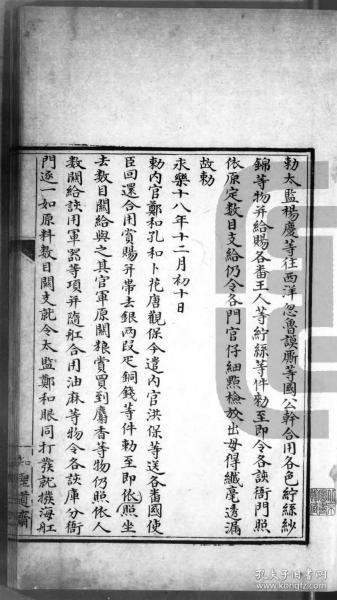 勅太監楊慶等往西洋忽魯謨厮等國公幹合用各色紵絲紗
錦等物并給賜各畨王人等紵絲等件勅至即令各該衙門照
依原定数目支給仍令各門官仔細點檢放出毋得纎毫透漏
故勅
永樂十八年十二月初十日
勅内官鄭和孔和卜花唐觀保今遣内官洪保等送各畨國使
臣回還合用賞賜并帶去銀兩叚疋銅錢等件勅至即依照坐
去数目關給與之其官軍原關粮賞買到麝香等物仍照依人
数關給該用軍器等項并隨舡合用油麻等物令各該庫分衙
門逐一如原料数目關支就令太監鄭和眼同打發就撥海舡
知聖道齋
孔夫子旧书网